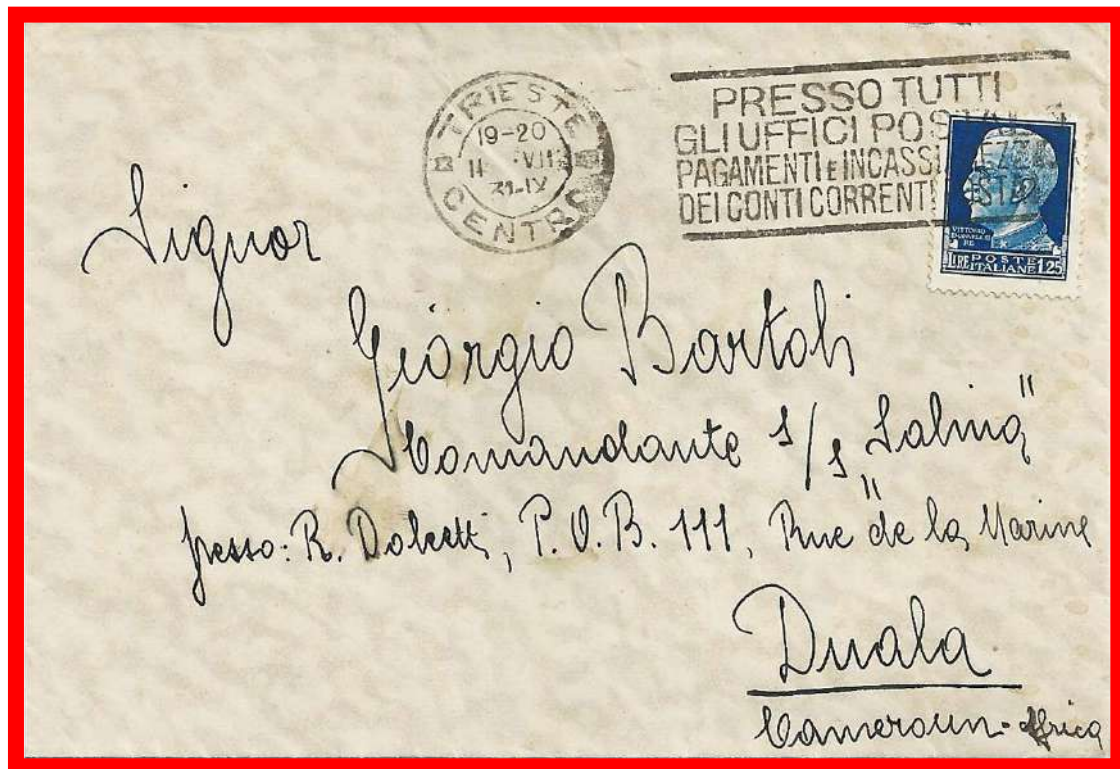 TRIESTE
19-20
CENTRO
PRESSO TUTTI
GLI UFFICI
PAGAMENTI E INCASSI
DEI CONTI CORRENTI
VITTORIO
RE
LIRE POSTE ITALIANE 1.25
Signor
Giorgio Bartoli
Comandante s/s "Salina"
presso: R. Dolcetti, P.O.B. 111, Rue de la Marine
Duala
Cameroun - Africa